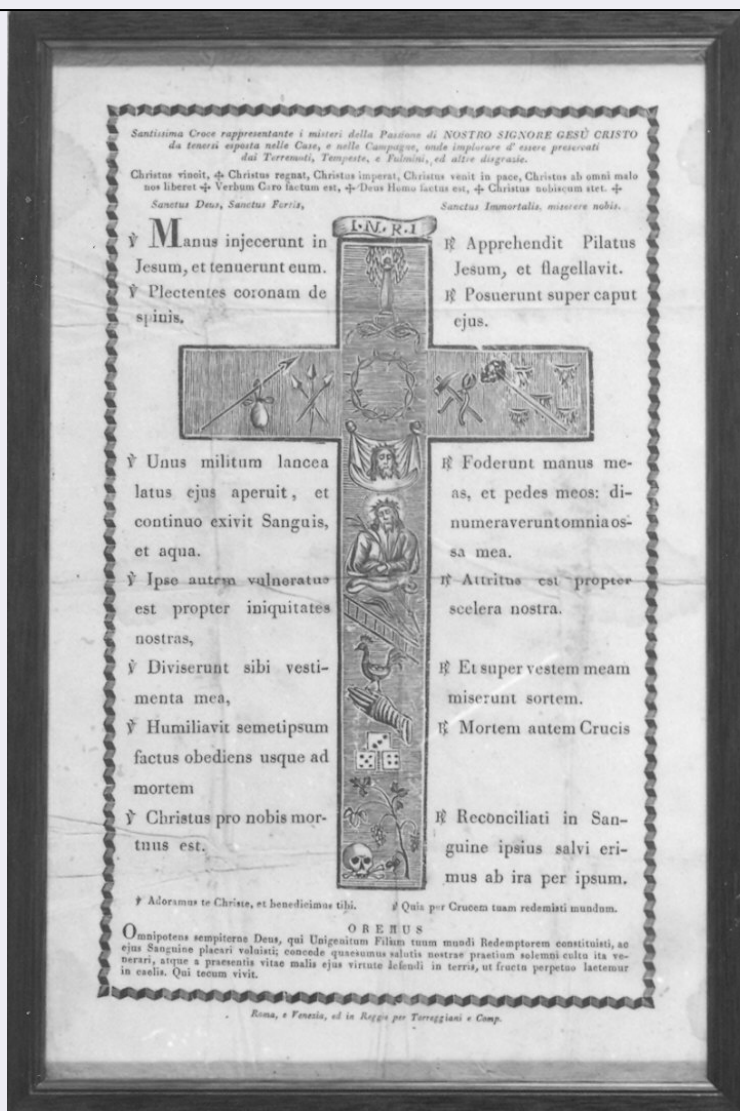 Santissima Croce rappresentante i misteri della Passione di NOSTRO SIGNORE GESÙ CRISTO
da tenersi esposta nelle Case, e nelle Campagne, onde implorare d' essere preservati
dai Terremoti, Tempeste, e Fulmini, ed altre disgrazie.
Christus vincit, ✣ Christus regnat, Christus imperat, Christus venit in pace, Christus ab omni malo
nos liberet ✣ Verbum Caro factum est, ✣ Deus Homo factus est, ✣ Christus nobiscum stet. ✣
Sanctus Deus, Sanctus Fortis,
Sanctus Immortalis, miserere nobis.
I.N.R.I
℣ Manus injecerunt in
Jesum, et tenuerunt eum.
℣ Plectentes coronam de
spinis,
℟ Apprehendit Pilatus
Jesum, et flagellavit.
℟ Posuerunt super caput
ejus.
℣ Unus militum lancea
latus ejus aperuit, et
continuo exivit Sanguis,
et aqua.
℣ Ipse autem vulneratus
est propter iniquitates
nostras,
℣ Diviserunt sibi vesti-
menta mea,
℣ Humiliavit semetipsum
factus obediens usque ad
mortem
℣ Christus pro nobis mor-
tuus est.
℟ Foderunt manus me-
as, et pedes meos: di-
numeraverunt omnia os-
sa mea.
℟ Attritus est propter
scelera nostra.
℟ Et super vestem meam
miserunt sortem.
℟ Mortem autem Crucis
℟ Reconciliati in San-
guine ipsius salvi eri-
mus ab ira per ipsum.
℣ Adoramus te Christe, et benedicimus tibi.
℣ Quia per Crucem tuam redemisti mundum.
OREMUS
Omnipotens sempiterne Deus, qui Unigenitum Filium tuum mundi Redemptorem constituisti, ac
ejus Sanguine placari voluisti; concede quaesumus salutis nostrae praetium solemni cultu ita ve-
nerari, atque a praesentis vitae malis ejus virtute defendi in terris, ut fructu perpetuo laetemur
in caelis. Qui tecum vivit.
Roma, e Venezia, ed in Reggio per Torreggiani e Comp.